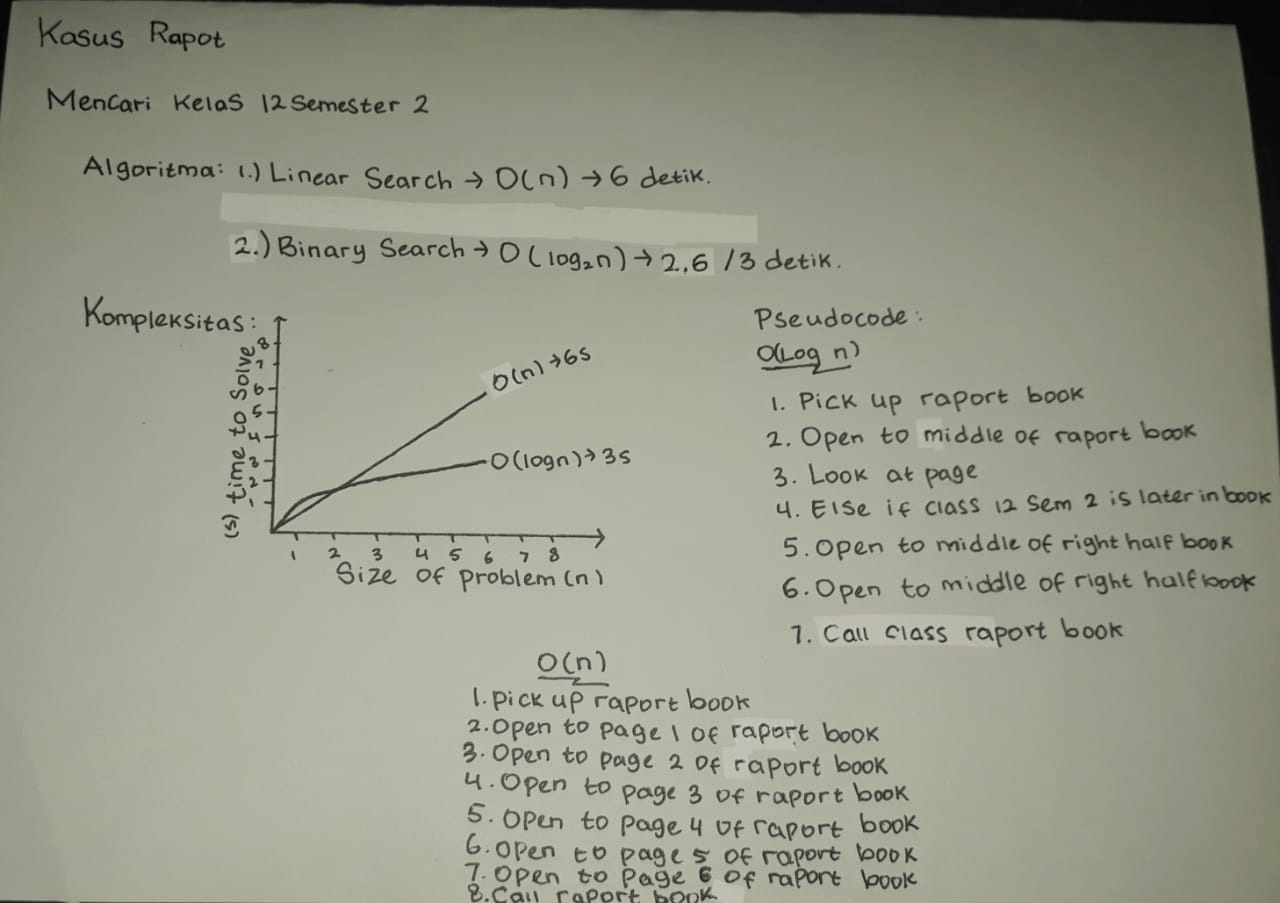 Kasus Rapot
Mencari Kelas 12 Semester 2
Algoritma: 1.) Linear Search → O(n) → 6 detik.
2.) Binary Search → O(log₂n) → 2,6 /3 detik.
Kompleksitas:
(s) time to Solve
8
7
6
5
4
3
2
-
O(n) → 6s
O(logn) → 3s
1 2 3 4 5 6 7 8
Size of problem (n)
Pseudocode:
O(Log n)
1. Pick up raport book
2. Open to middle of raport book
3. Look at page
4. Else if class 12 Sem 2 is later in book
5. Open to middle of right half book
6. Open to middle of right half book
7. Call class raport book
O(n)
1. Pick up raport book
2. Open to page 1 of raport book
3. Open to page 2 of raport book
4. Open to page 3 of raport book
5. Open to page 4 of raport book
6. Open to page 5 of raport book
7. Open to page 6 of raport book
8. Call raport book